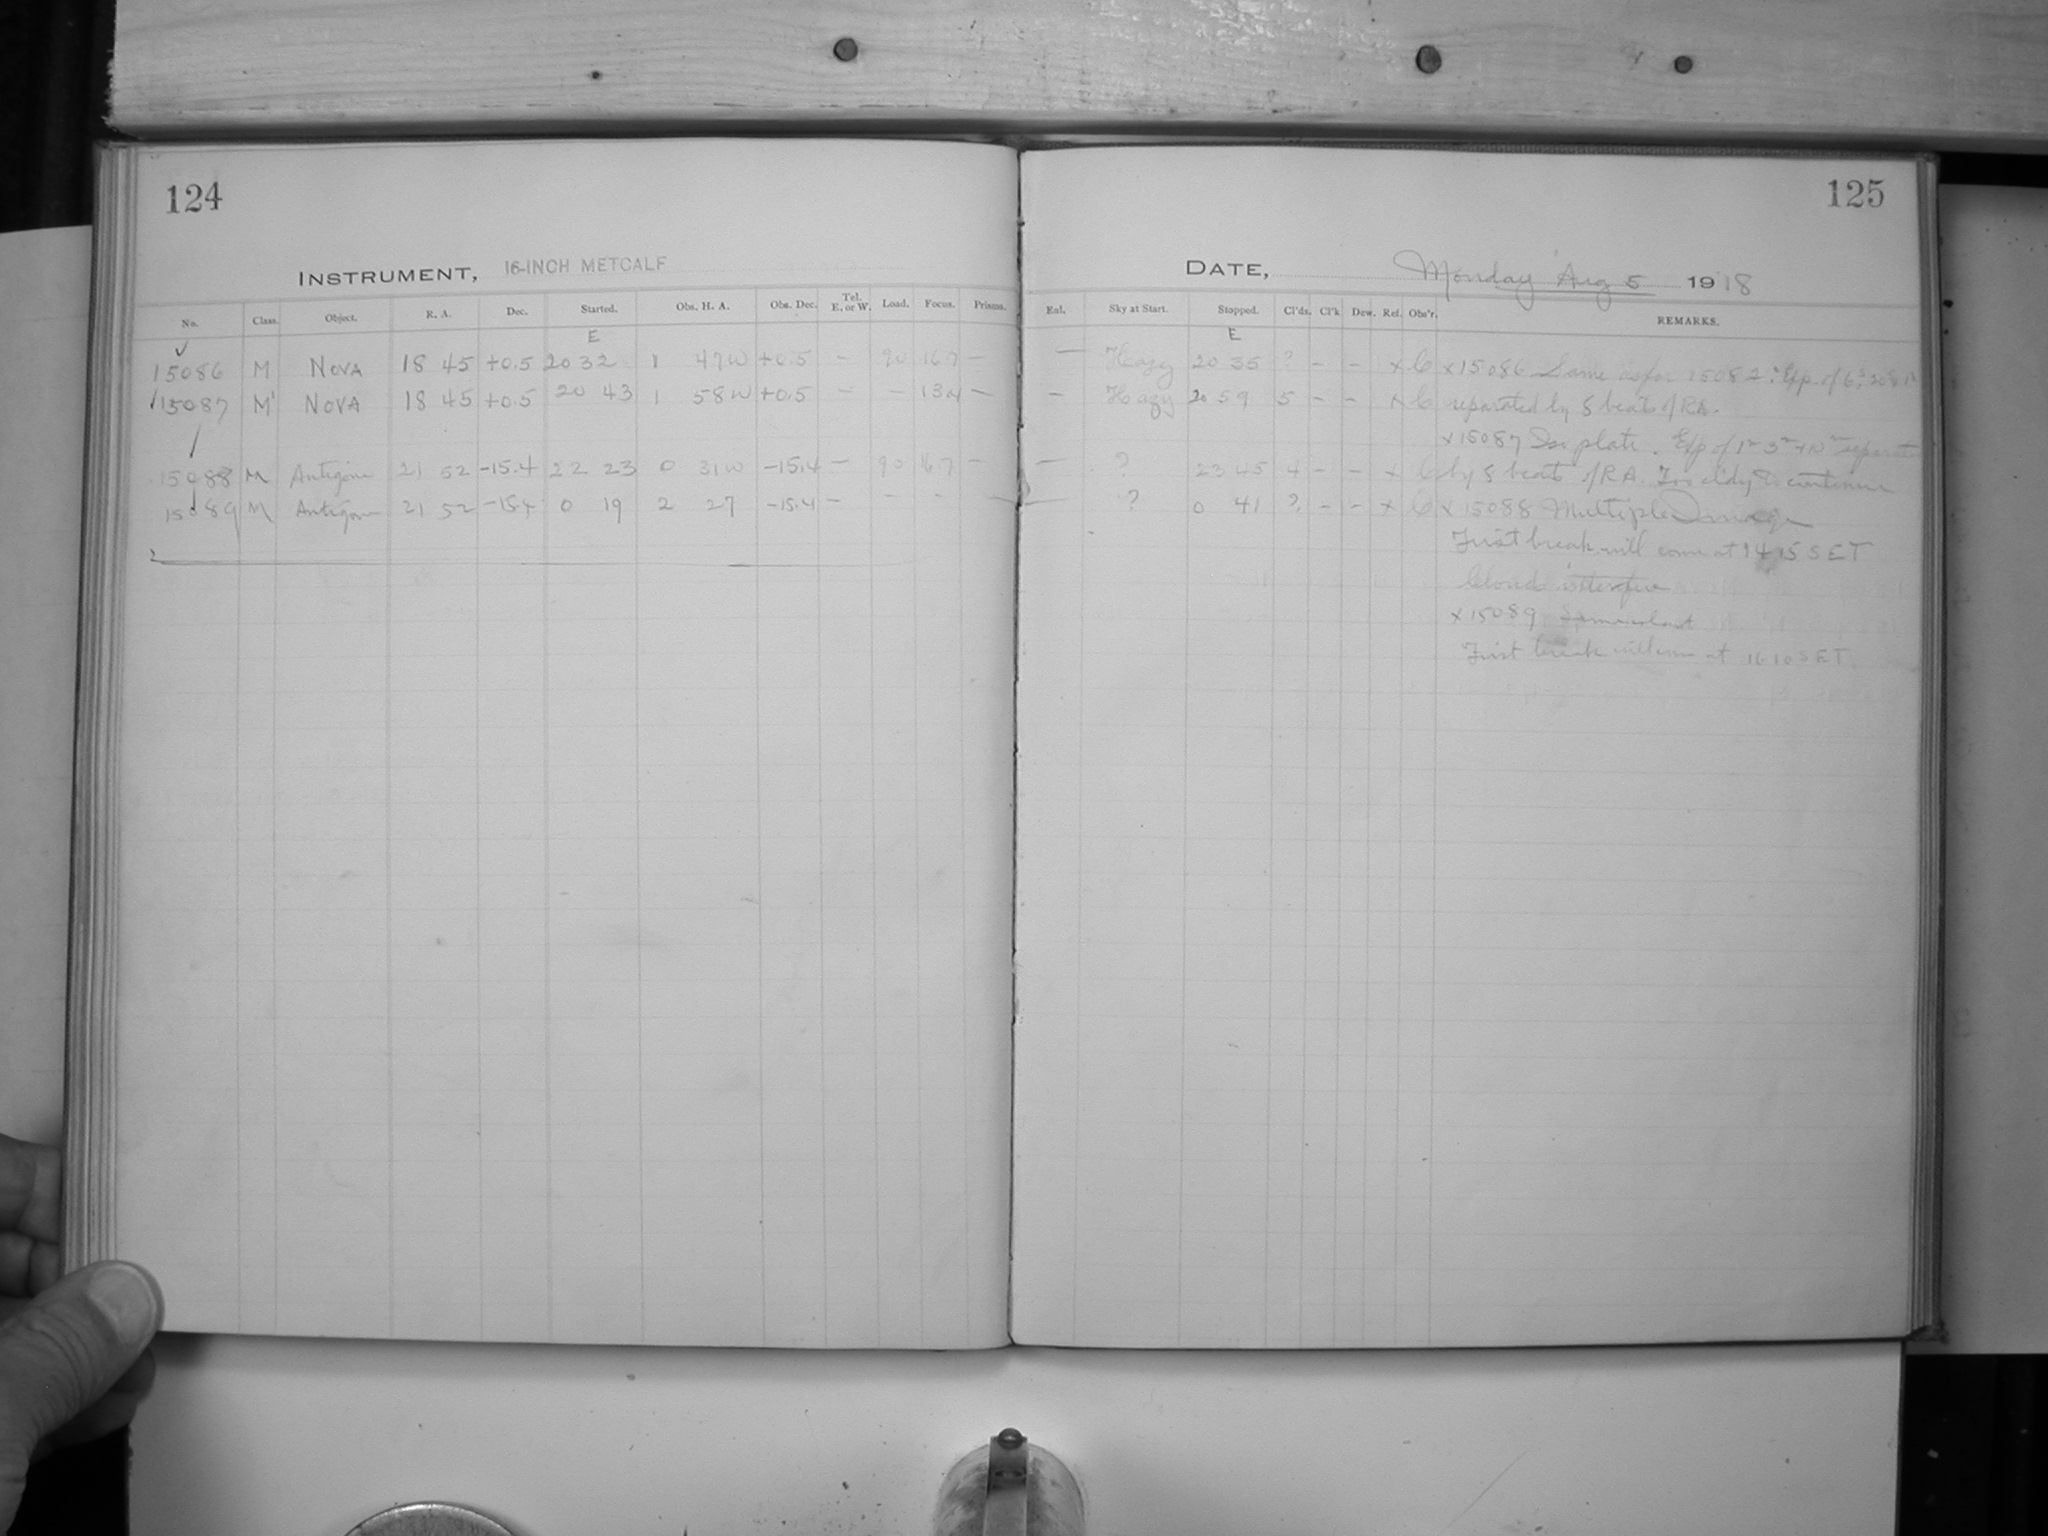 124
125
INSTRUMENT, 16-INCH METCALF
DATE, Monday Aug 5 1918
No. Class. Object. R. A. Dec. Started. Obs. H. A. Obs. Dec. Tel. E. or W. Load. Focus. Prisms. Enl. Sky at Start. Stopped. Cl'ds. Cl'k Dew. Ref. Obs'r. REMARKS.
E E
15086 M NOVA 18 45 +0.5 20 32 1 47 W +0.5 — 90 16.7 — — Hazy 20 35 ? - - x C x 15086 Same as for 15082. Exp. of
15087 M NOVA 18 45 +0.5 20 43 1 58 W +0.5 — — — — Hazy 20 59 5 - - x C separated by 5 beats of RA.
x 15087 plate. Exp of
15088 M Antigone 21 52 -15.4 22 23 0 31 W -15.4 — 90 16.7 — — ? 23 45 4 - - x C by 5 beats of R.A. Too cldy to continue
15089 M Antigone 21 52 -15.4 0 19 2 27 -15.4 — - - — ? 0 41 ? - - x C x 15088 Multiple Image
First break will come at 14 15 S E T
Clouds interfere
x 15089 Same as last
First break will come at 16 10 S E T